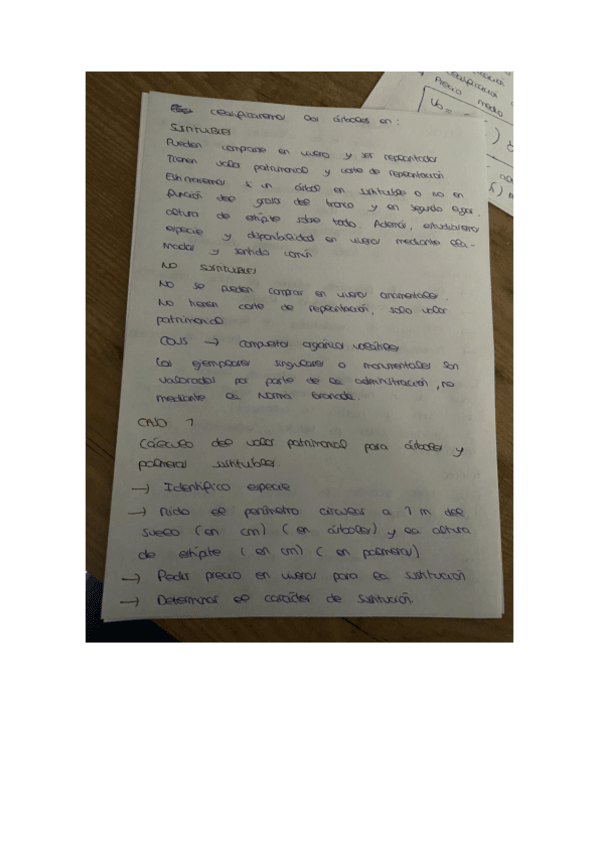 Clasificaremos los árboles en:
SUSTITUIBLES
Pueden comprarse en vivero y ser replantados
Tienen valor patrimonial y coste de replantación
Estimaremos si un árbol es sustituible o no en
función del grosor del tronco y en segundo lugar,
altura de estípite sobre todo. Además, estudiaremos
especie y disponibilidad en viveros mediante lla-
madas y sentido común
NO SUSTITUIBLES
No se pueden comprar en viveros ornamentales.
No tienen coste de replantación, solo valor
patrimonial
COUS → compuestos orgánicos volátiles
Los ejemplares singulares o monumentales son
valorados por parte de la administración, no
mediante la Norma Granada.
CASO 1
Cálculo del valor patrimonial para árboles y
palmeras sustituibles.
→ Identifico especie
→ Mido el perímetro circular a 1 m del
suelo (en cm) (en árboles) y la altura
de estípite (en cm) (en palmeras)
→ Pedir precio en viveros para la sustitución
→ Determinar el carácter de sustitución
Precio medio